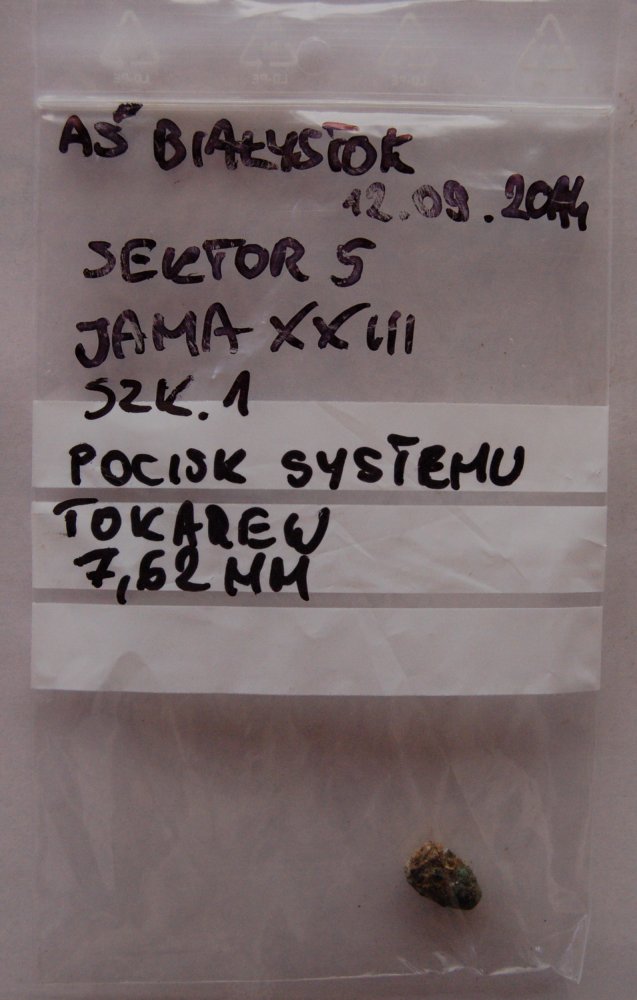 AŚ BIAŁYSTOK
12.09.2014
SEKTOR 5
JAMA XXIII
SZK. 1
POCISK SYSTEMU
TOKAREW
7,62 MM